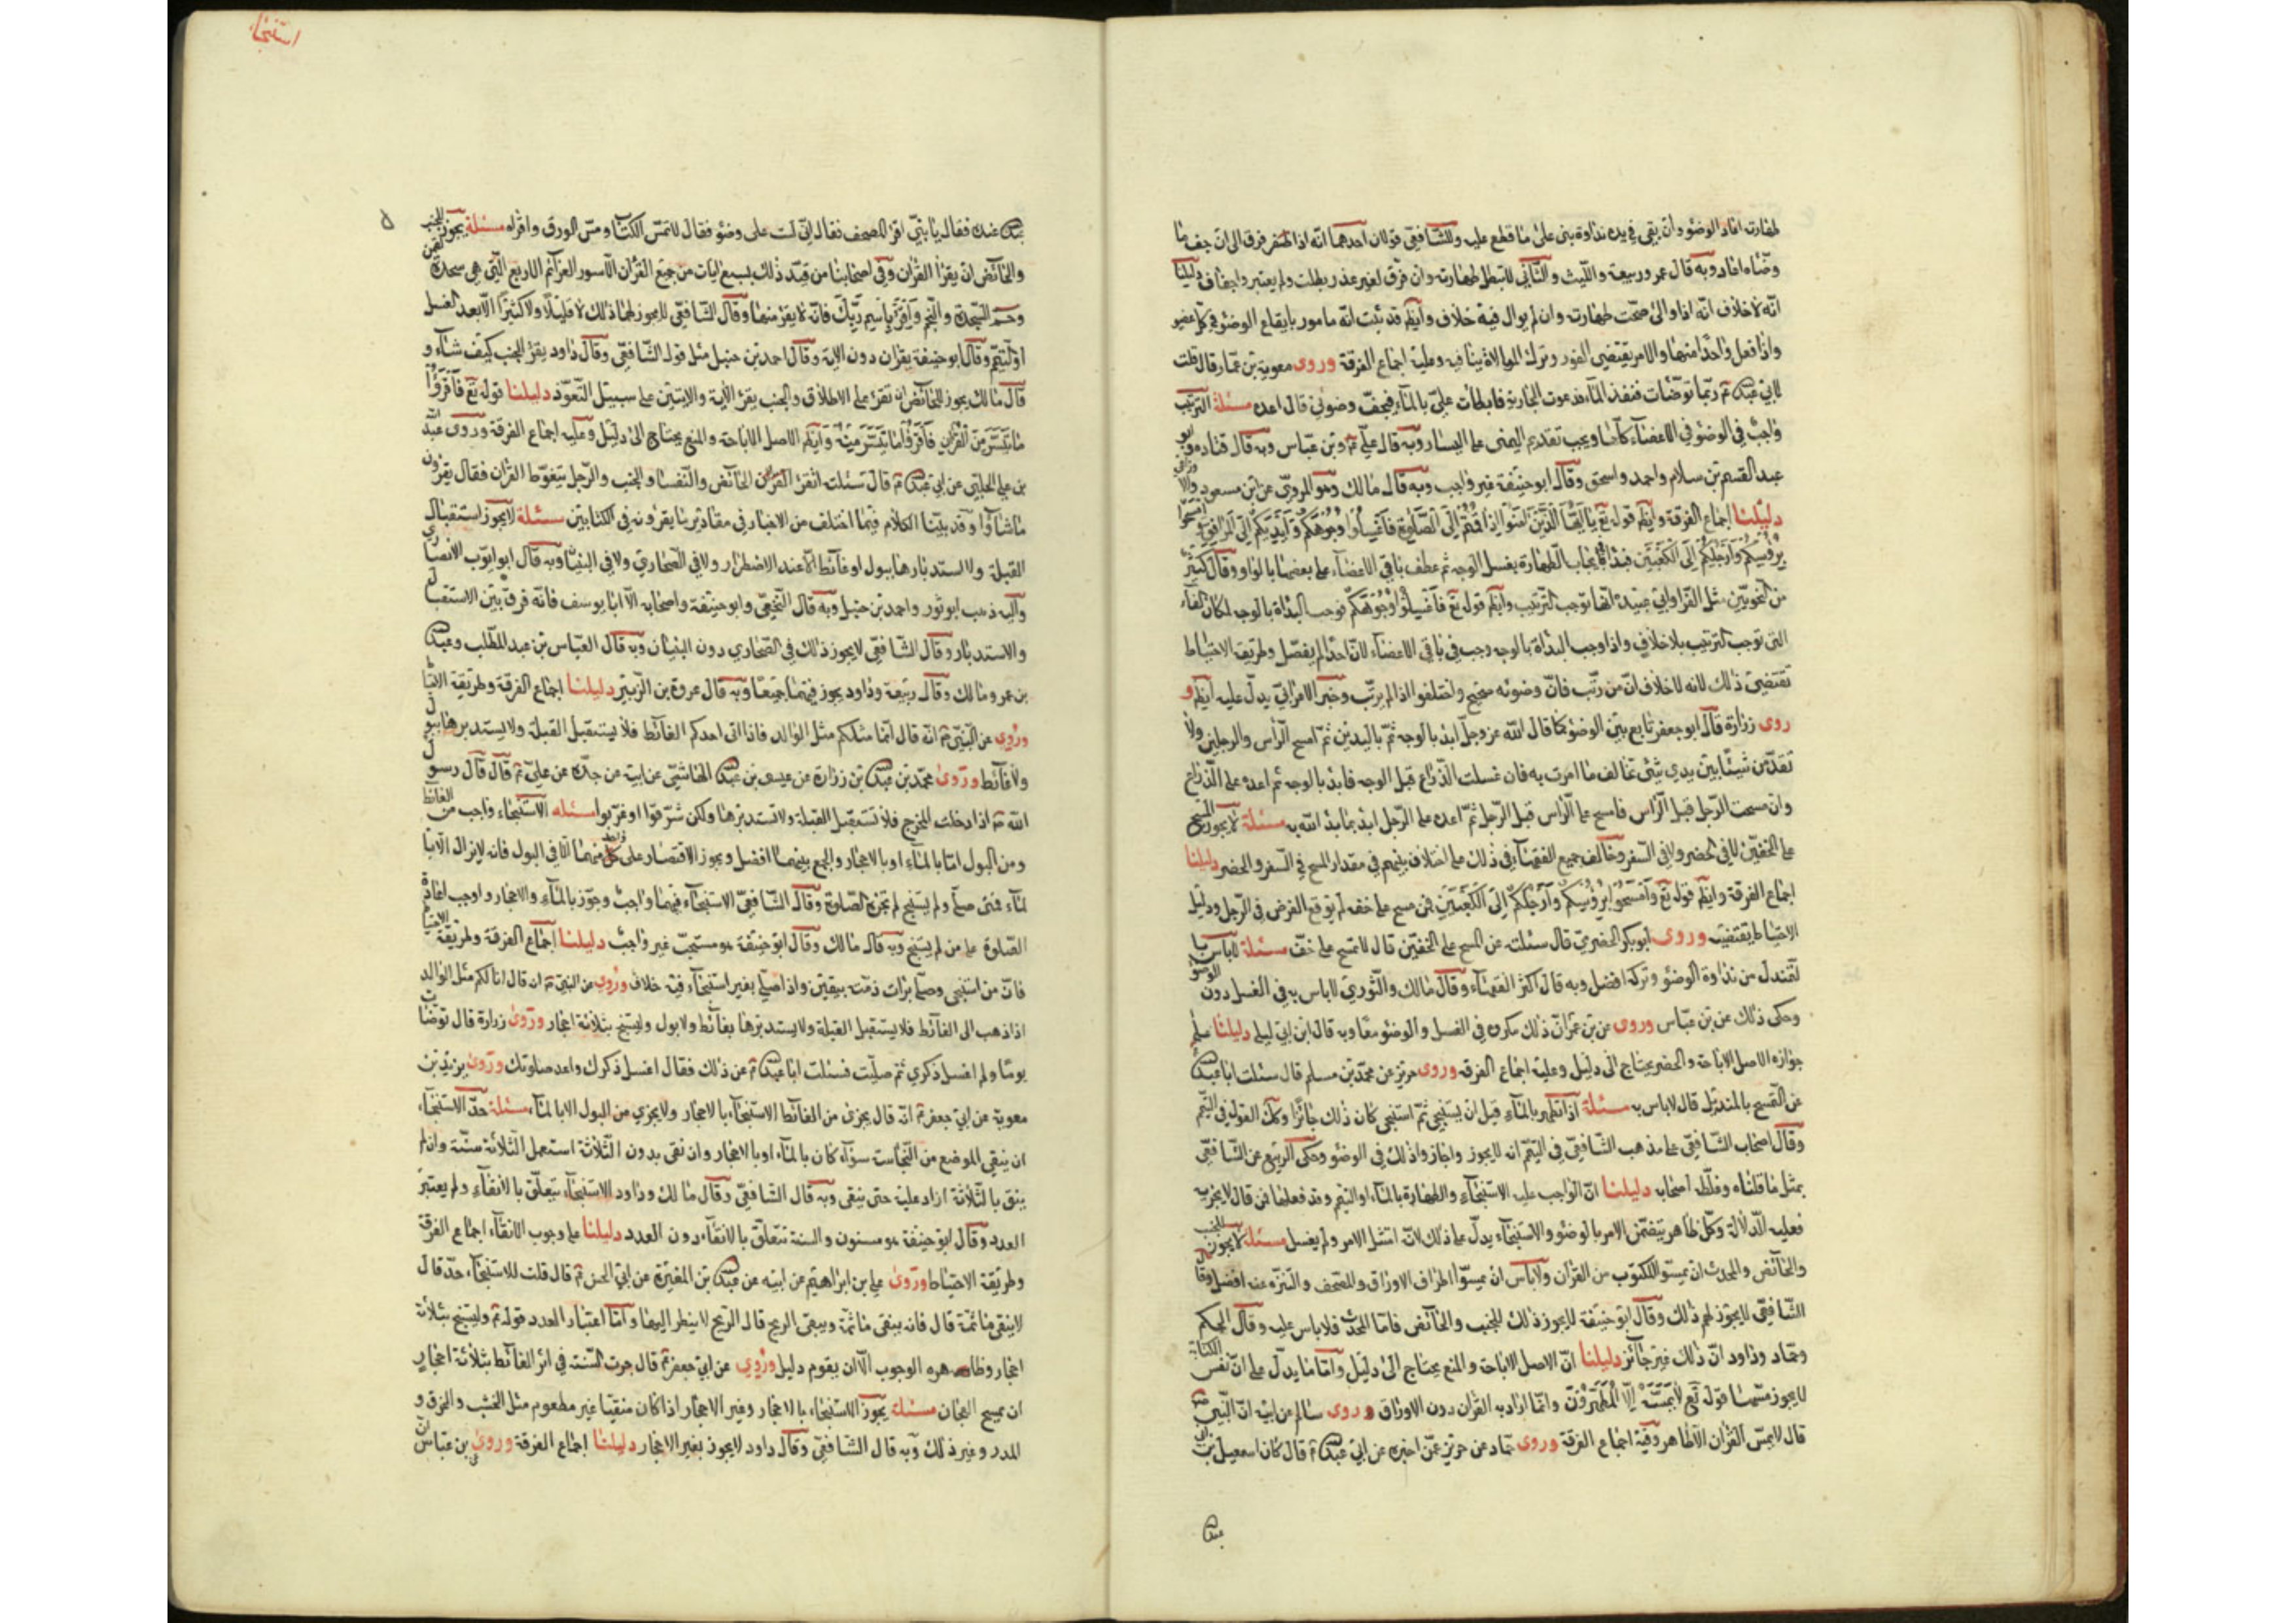 طهارته اعاد الوضوء وان بقي في يده نداوة بنى على ما قطع عليه وللشافعي قولان احدهما انه اذا فرق الى ان جف ما
وضاه اعاد وبه قال عمر وربيعة والليث والثاني لا تبطل طهارته وان فرق لغير عذر بطلت ولم يعتبر دليلنا
انه لا خلاف انه اذا والى صحت طهارته وان لم يوال فيه خلاف وايضا قد ثبت انه مامور بايقاع الوضوء في كل عضو
واذا فعل واحدا منها والامر يقتضي الفور وترك الموالاة ينافيه وعليه اجماع الفرقة وروى معوية بن عمار قال قلت
لابي عبدالله ع ربما توضات فنفد الماء فدعوت الجارية فابطات علي بالماء فيجف وضوئي قال اعده مسئلة الترتيب
واجب في الوضوء في الاعضاء كلها ويجب تقديم اليمنى على اليسار وبه قال علي ع وبن عباس وبه قال قتاده وابو
عبيد القسم بن سلام واحمد واسحق وقال ابو حنيفة غير واجب وبه قال مالك وهو المروي عن ابن مسعود
دليلنا اجماع الفرقة وايضا قوله تع يا ايها الذين امنوا اذا قمتم الى الصلوة فاغسلوا وجوهكم وايديكم الى المرافق وامسحوا
برؤسكم وارجلكم الى الكعبين فبدا بايجاب الطهارة بغسل الوجه ثم عطف باقي الاعضاء على بعضها بالواو وقال كثير
من النحويين مثل الفرا وابي عبيد انها توجب الترتيب وايضا قوله تع فاغسلوا وجوهكم فوجب البداة بالوجه لمكان الفاء
التي توجب الترتيب بلا خلاف واذا وجب البداة بالوجه وجب في باقي الاعضاء لان احدا لم يفصل وطريقة الاحتياط
تقتضي ذلك لانه لا خلاف ان من رتب فان وضوئه صحيح واختلفوا اذا لم يرتب وخبر الاعرابي يدل عليه ايضا و
روى زرارة قال ابو جعفر تابع بين الوضوء كما قال الله عز وجل ابدأ بالوجه ثم باليدين ثم امسح الراس والرجلين ولا
تقدمن شيئا بين يدي شئ تخالف ما امرت به فان غسلت الذراع قبل الوجه فابدأ بالوجه ثم اعده على الذراع
وان مسحت الرجل قبل الراس فامسح على الراس قبل الرجل ثم اعده على الرجل ابدأ بما بدأ الله به مسئلة لا يجوز المسح
على الخفين لا في الحضر ولا في السفر وخالف جميع الفقهاء في ذلك على اختلاف بينهم في مقدار المسح في السفر والحضر دليلنا
اجماع الفرقة وايضا قوله تع وامسحوا برؤسكم وارجلكم الى الكعبين فمن مسح على خف لم يوقع الفرض في الرجل ودليل
الاحتياط يقتضيه وروى ابو بكر الحضرمي قال سئلته عن المسح على الخفين قال لا تمسح على خف مسئلة لا باس با
لتمندل من نداوة الوضوء وتركه افضل وبه قال اكثر الفقهاء وقال مالك والثوري لا باس به في الغسل دون الوضوء
وحكى ذلك عن بن عباس وروى عن بن عمر ان ذلك مكروه في الغسل والوضوء معا وبه قال ابن ابي ليلى دليلنا على
جوازه الاصل الاباحة والحضر يحتاج الى دليل وعليه اجماع الفرقة وروى حريز عن محمد بن مسلم قال سئلت ابا عبدالله
عن التمسح بالمنديل قال لا باس به مسئلة اذا تطهر بالماء قبل ان يستنجي ثم استنجى كان ذلك جائزا وكك القول في التيمم
وقال اصحاب الشافعي على مذهب الشافعي في التيمم انه لا يجوز واجازوا ذلك في الوضوء وحكى الربيع عن الشافعي
بمثل ما قلناه وغلطه اصحابه دليلنا ان الواجب عليه الاستنجاء والطهارة بالماء او التيمم وقد فعلهما فمن قال لا يجزيه
فعليه الدلالة وكل ظاهر يتضمن الامر بالوضوء والاستنجاء يدل على ذلك لانه امتثل الامر ولم يغسل مسئلة لا يجوز للجنب
والحائض والمحدث ان يمسوا المكتوب من القران ولا باس ان يمسوا اطراف الاوراق والمصحف والتنزه عنه افضل وقال
الشافعي لا يجوز لهم ذلك وقال ابو حنيفة لا يجوز ذلك للجنب والحائض فاما المحدث فلا باس عليه وقال الحكم
وحماد وداود ان ذلك غير جائز دليلنا ان الاصل الاباحة والمنع يحتاج الى دليل واما ما يدل على ان نفس الكتابة
لا يجوز مسها قوله تع لا يمسه الا المطهرون وانما اراد به القران دون الاوراق وروى سالم عن ابيه ان النبي ص
قال لا يمس القران الا طاهر وفيه اجماع الفرقة وروى حماد عن حريز عمن اخبره عن ابي عبدالله ع قال كان اسمعيل بن ابي
عبدالله
استنجاء
عبدالله عنده فقال يا بني اقرا المصحف فقال اني لست على وضوء فقال لا تمس الكتاب ومس الورق واقراه مسئلة يجوز للجنب
والحائض ان يقرا القران وفي اصحابنا من قيد ذلك بسبع ايات من جميع القران الا سور العزائم الاربع التي هي سجدة لقمن
وحم السجدة والنجم واقرا باسم ربك فانه لا يقرا منها وقال الشافعي لا يجوز لهما ذلك لا قليلا ولا كثيرا الا بعد الغسل
او التيمم وقال ابو حنيفة يقران دون الاية وقال احمد بن حنبل مثل قول الشافعي وقال داود يقرا الجنب كيف شاء و
قال مالك يجوز للحائض ان تقرا على الاطلاق والجنب يقرا الاية والايتين على سبيل التعوذ دليلنا قوله تع فاقرؤا
ما تيسر من القران فاقرؤا ما تيسر منه وايضا الاصل الاباحة والمنع يحتاج الى دليل وعليه اجماع الفرقة وروى عبيدالله
بن علي الحلبي عن ابي عبدالله ع قال سئلته اتقرا القران الحائض والنفسا والجنب والرجل يتغوط القران فقال يقرؤن
ما شاؤا وقد بينا الكلام فيما اختلف من الاخبار في مقادير ما يقرؤنه في الكتابين مسئلة لا يجوز استقبال
القبلة ولا استدبارها ببول او غائط الا عند الاضطرار ولا في الصحاري ولا في البنيان وبه قال ابو ايوب الانصاري
واليه ذهب ابو ثور واحمد بن حنبل وبه قال النخعي وابو حنيفة واصحابه الا ابا يوسف فانه فرق بين الاستقبال
والاستدبار وقال الشافعي لا يجوز ذلك في الصحاري دون البنيان وبه قال العباس بن عبد المطلب وعبدالله
بن عمر ومالك وقال ربيعة وداود يجوز فيهما جميعا وبه قال عروة بن الزبير دليلنا اجماع الفرقة وطريقة الاحتياط
وروى عن النبي ص انه قال انما مثلكم مثل الوالد فاذا اتى احدكم الغائط فلا يستقبل القبلة ولا يستدبرها ببول
ولا غائط وروى محمد بن عبدالله بن زرارة عن عيسى بن عبدالله الهاشمي عن ابيه عن جده عن علي ع قال قال رسول
الله ص اذا دخلت المخرج فلا تستقبل القبلة ولا تستدبرها ولكن شرقوا او غربوا مسئله الاستنجاء واجب من الغائط
ومن البول اما بالماء او بالاحجار والجمع بينهما افضل ويجوز الاقتصار على كل واحد منهما الا في البول فانه لا يزال الا با
لماء فمتى صلى ولم يستنج لم تجزه الصلوة وقال الشافعي الاستنجاء فيهما واجب وجوز بالماء والاحجار واوجب اعادة
الصلوة على من لم يستنج وبه قال مالك وقال ابو حنيفة هو مستحب غير واجب دليلنا اجماع الفرقة وطريقة الاحتياط
فان من استنجى وصلى برات ذمته بيقين واذا صلى بغير استنجاء فيه خلاف وروى عن النبي ص انه قال انا لكم مثل الوالد
اذا ذهب الى الغائط فلا يستقبل القبلة ولا يستدبرها بغائط ولا بول وليستنج بثلاثة احجار وروى زرارة قال توضات
يوما ولم اغسل ذكري ثم صليت فسئلت ابا عبدالله ع عن ذلك فقال اغسل ذكرك واعد صلوتك وروى بريد بن
معوية عن ابي جعفر ع انه قال يجزى من الغائط الاستنجاء بالاحجار ولا يجزي من البول الا بالماء مسئلة حد الاستنجاء
ان ينقي الموضع من النجاسة سواء كان بالماء او بالاحجار وان نقى بدون الثلاثة استعمل الثلاثة سنة وان لم
ينق بالثلاثة ازاد عليه حتى ينقى وبه قال الشافعي وقال مالك وداود الاستنجاء يتعلق بالانقاء ولم يعتبر
العدد وقال ابو حنيفة هو مسنون والسنة تتعلق بالانقاء دون العدد دليلنا على وجوب الانقاء اجماع الفرقة
وطريقة الاحتياط وروى علي بن ابراهيم عن ابيه عن عبدالله بن المغيرة عن ابي الحسن ع قال قلت للاستنجاء حد قال
لا ينقى ما ثمة قال فانه ينقى ما ثمة ويبقى الريح قال الريح لا ينظر اليها واما اعتبار العدد قوله ص وليستنج بثلاثة
احجار وظاهره الوجوب الا ان يقوم دليل وروى عن ابي جعفر ع قال جرت السنة في اثر الغائط بثلاثة احجار
ان يمسح العجان مسئلة يجوز الاستنجاء بالاحجار وغير الاحجار اذا كان منقيا غير مطعوم مثل الخشب والخرق و
المدر وغير ذلك وبه قال الشافعي وقال داود لا يجوز بغير الاحجار دليلنا اجماع الفرقة وروى بن عباس ان